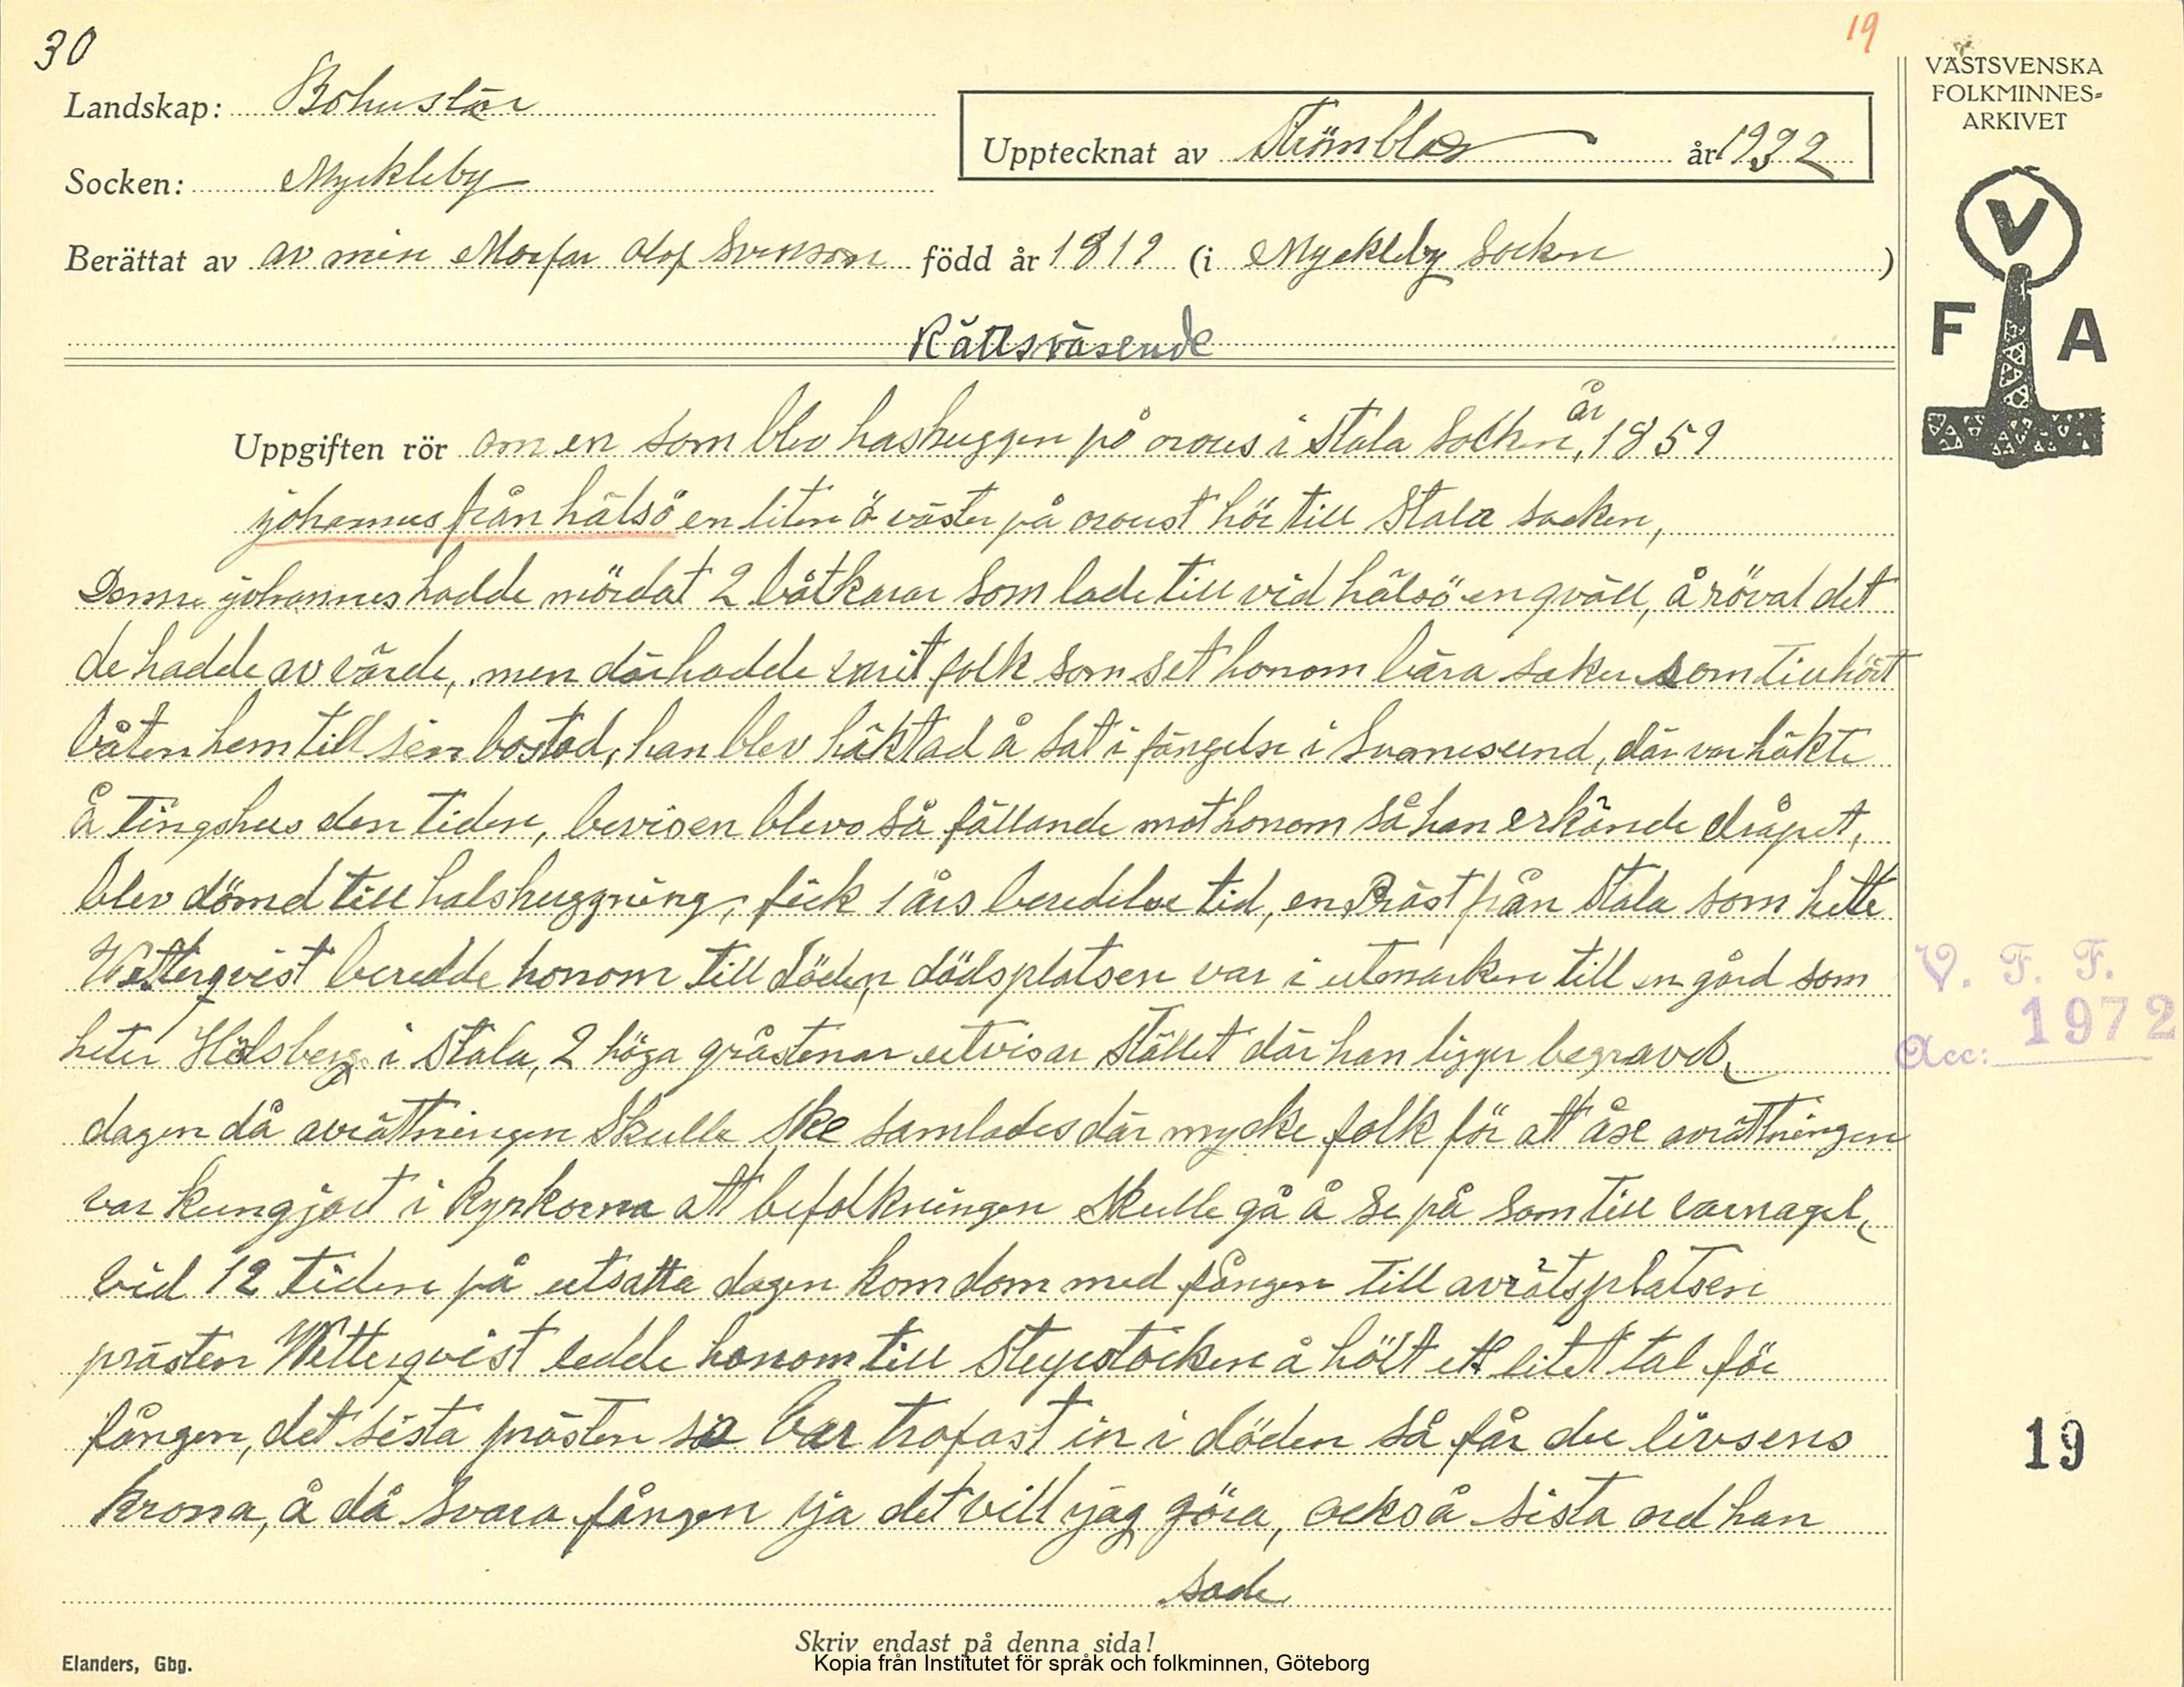 30
19
Landskap: Bohuslän
Socken: Myckleby
Upptecknat av Strömblad år 1932
Berättat av av min Morfar Olof Svenson född år 1819 (i Myckleby Socken)
Rättsväsende
Uppgiften rör om en som blev halshuggen på orous i Stala Socken, år 1859
johannes från hälsö en liten ö väster på oroust hör till Stala socken,
Denne johannes hadde mördat 2 båtkarar som lade till vid hälsö en qväll, å rövat det
de hadde av värde, men där hadde varit folk som set honom bära saker som tillhört
båten hem till sin bostad, han blev häktad å sat i fängelse i Svanesund, där var häkte
å Tingshus den tiden, bevisen blevo så fällande mot honom så han erkände dråpet,
blev dömd till halshuggning, fick 1 års beredelse tid, en Präst från Stala som hette
Wetterqvist beredde honom till döden, dödsplatsen var i utmarken till en gård som
heter Hölsberg i Stala, 2 höga gråstenar utvisar stället där han ligger begravd,
dagen då avrättningen skulle ske samlades där mycke folk för att åse avrättningen
var kungjort i kyrkorna att befolkningen skulle gå å se på som till varnagel,
vid 12 tiden på utsatta dagen kom dom med fången till avrätsplatsen
prästen Wetterqvist ledde honom till Stupstocken å hölt ett litet tal för
fången, det sista prästen sa var trofast in i döden så får du livsens
krona, å då svara fången ja det vill jag göra, också sista ord han
sade
Skriv endast på denna sida!
Elanders, Gbg.
Kopia från Institutet för språk och folkminnen, Göteborg
VÄSTSVENSKA
FOLKMINNES-
ARKIVET
V
F A
V. F. F.
Acc: 1972
19